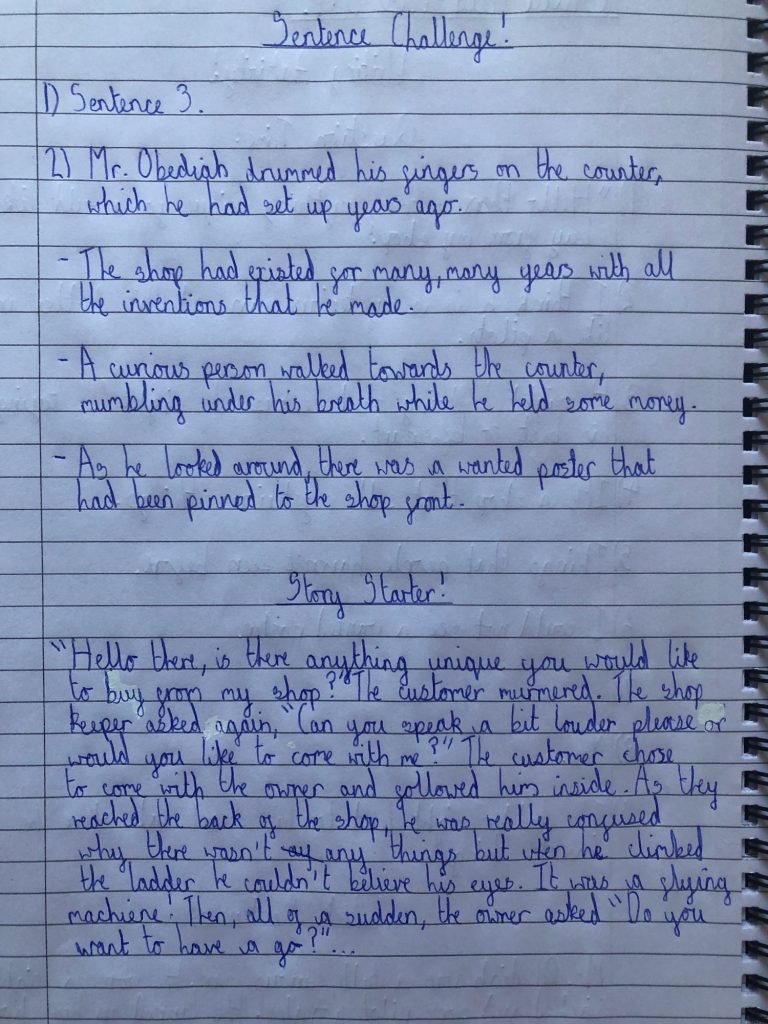 Sentence Challenge!
1) Sentence 3.
2) Mr. Obediah drummed his fingers on the counter,
which he had set up years ago.
- The shop had existed for many, many years with all
the inventions that he made.
- A curious person walked towards the counter,
mumbling under his breath while he held some money.
- As he looked around, there was a wanted poster that
had been pinned to the shop front.
Story Starter!
"Hello there, is there anything unique you would like
to buy from my shop?" The customer murmered. The shop
keeper asked again, "Can you speak a bit louder please or
would you like to come with me?" The customer chose
to come with the owner and followed him inside. As they
reached the back of the shop, he was really confused
why there wasn't any things but when he climbed
the ladder he couldn't believe his eyes. It was a flying
machiene! Then, all of a sudden, the owner asked "Do you
want to have a go?"...